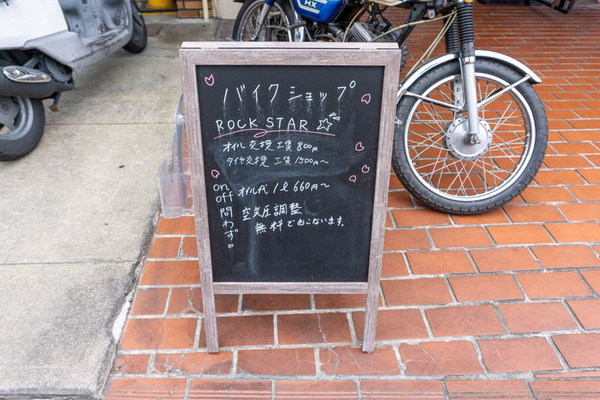 バイクショップ
ROCK STAR
オイル交換 工賃 800円
タイヤ交換 工賃 1500円〜
on off 問わず。
オイル代 1ℓ 660円〜
空気圧調整
無料でおこないます。
HX